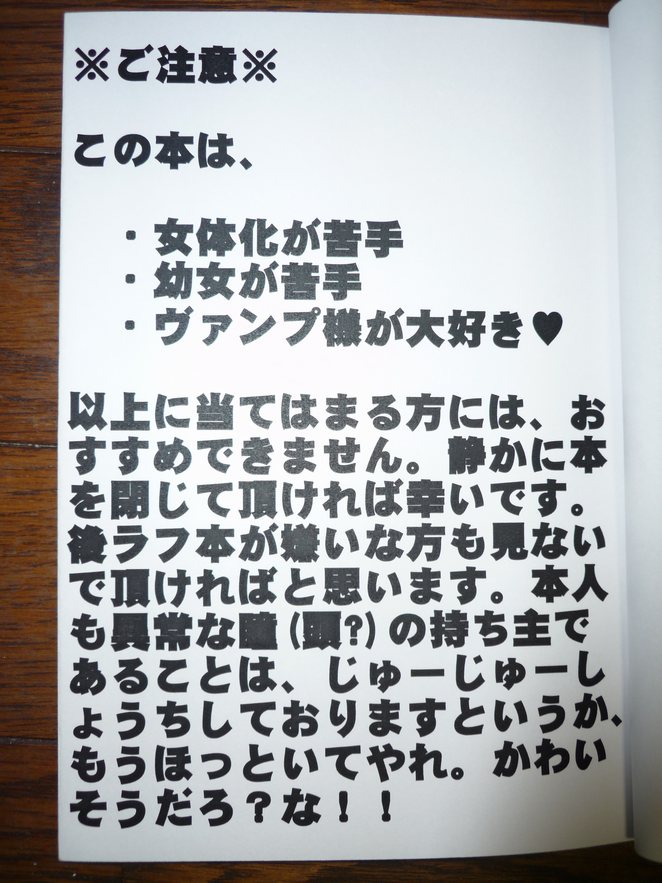 ※ご注意※
この本は、
・女体化が苦手
・幼女が苦手
・ヴァンプ様が大好き♥
以上に当てはまる方には、お
すすめできません。静かに本
を閉じて頂ければ幸いです。
後ラフ本が嫌いな方も見ない
で頂ければと思います。本人
も異常な瞳(頭?)の持ち主で
あることは、じゅーじゅーし
ょうちしておりますというか、
もうほっといてやれ。かわい
そうだろ？な！！